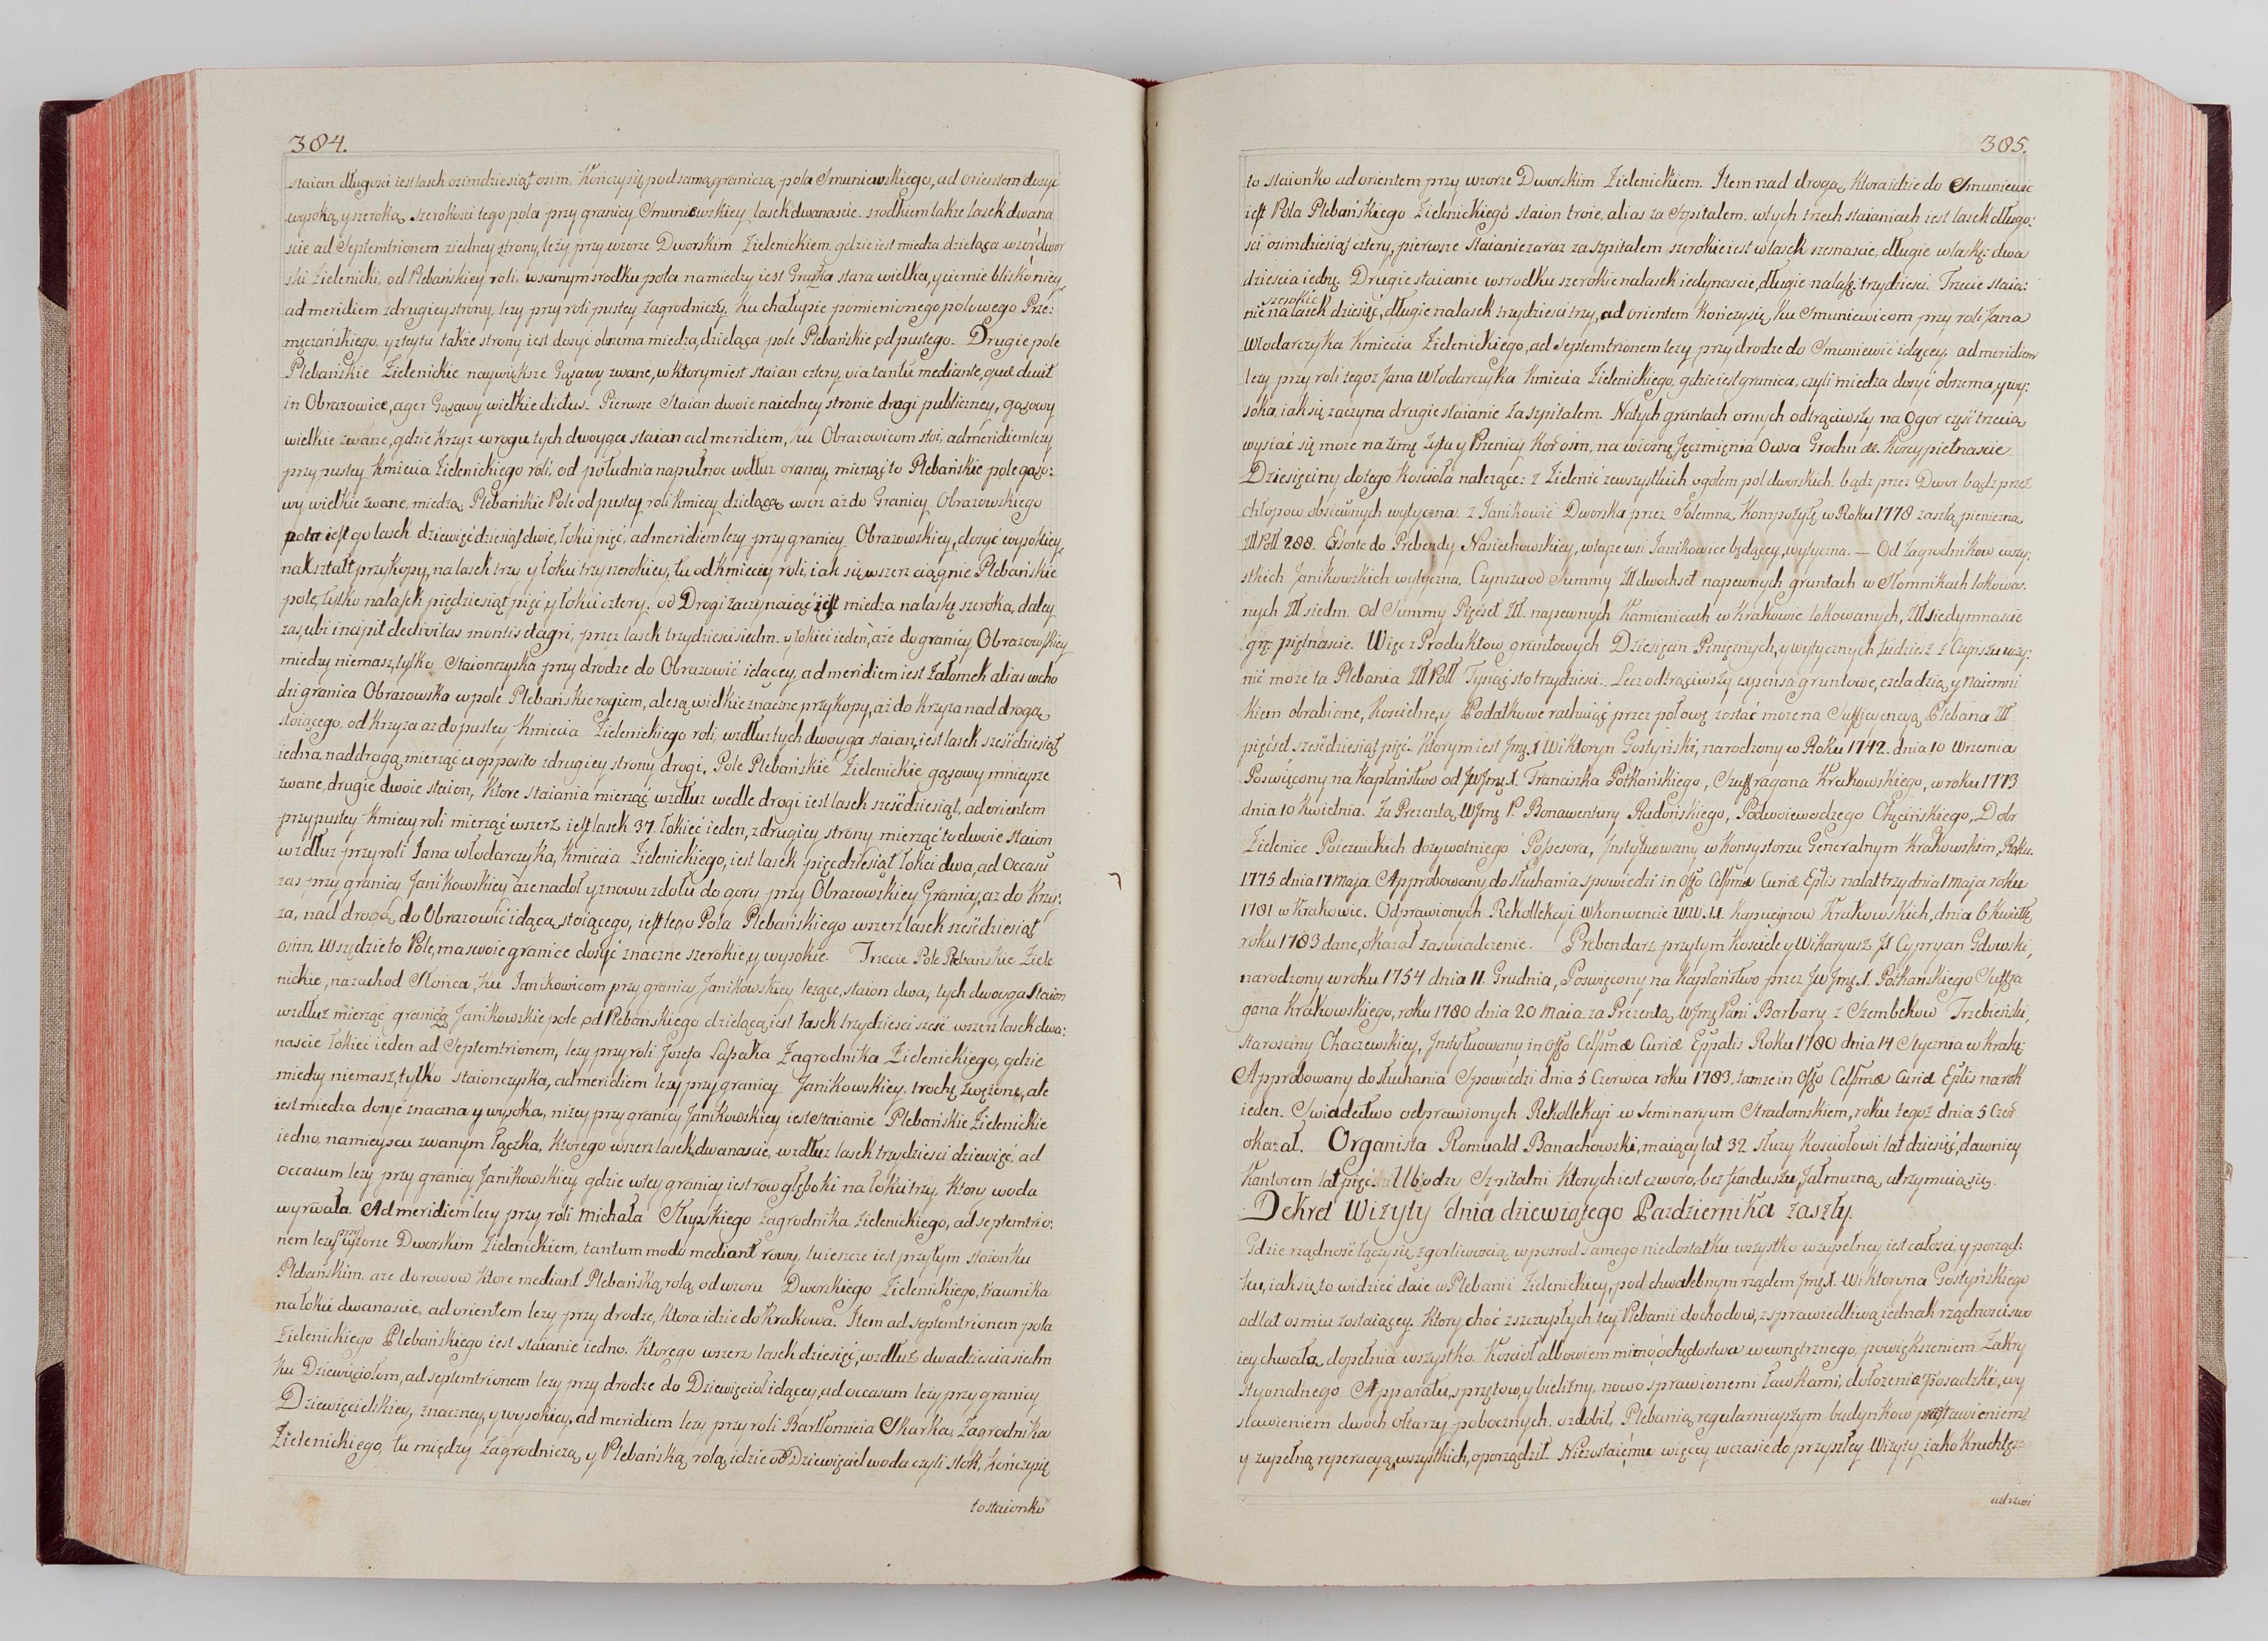 384.
staian długosci iest lasek osimdziesiąt osim. Kończy się pod samą granicą pola Smuniewskiego, ad orientem dosyć
wysoką y szeroką, szerokosci tego pola przy granicy Smuniewskiey lasek dwanascie. srodkiem także lasek dwana
scie ad Septemtrionem z iedney strony, leży przy wzorze Dworskim Zielenickiem, gdzie iest miedza dzieląca wzór dwor
ski Zielenicki, od Plebańskiey roli. w samym srodku pola na miedzy iest Gruszka stara wielka, y ciernie blisko niey,
ad meridiem z drugiey strony, leży przy roli pustey Zagrodniczey, ku chałupie pomienionego polowego Prze:
męczańskiego, y z teyto także strony iest dosyć obszerna miedza, dzieląca pole Plebańskie od pustego. Drugie pole
Plebańskie Zielenickie naywiększe Gąsawy zwane, w ktorym iest staian cztery, via tantu mediante, quæ ducit
in Obrazowice, ager Gąsawy wielkie dictus. Pierwsze Staian dwoie na iedney stronie drogi publiczney, gąsowy
wielkie zwane, gdzie Krzyż w rogu tych dwoyga staian ad meridiem, ku Obrazowicom stoi, ad meridiem leży
przy pustey Kmiecia Zielenickiego roli, od południa na pułnoc wdłuż oraney, mierząc to Plebańskie pole gąso:
wy wielkie zwane, miedzą Plebańskie Pole od pustey roli Kmiecy dzielącą wszerz aż do Granicy Obrazowskiego
pola iest go lasek dziewięćdziesiąt dwie, łokci pięć, ad meridiem leży przy granicy Obrazowskiey, dosyć wysokiey,
nakształt przykopy, na lasek trzy y łokci trzy szerokiey, tu od Kmieciey roli, iak się wszerz ciągnie Plebańskie
pole, tylko na lasek pięcdziesiąt pięć y łokci cztery, od Drogi zaczynaiąc iest miedza na laskę szeroka, daley
zas, ubi incipit declivitas montis et agri, przez lasek trzydziesci siedm. y łokieć ieden, aże do granicy Obrazowskiey
miedzy niemasz, tylko Staionczyska przy drodze do Obrazowic idącey, ad meridiem iest Załomek alias wcho
dzi granica Obrazowska w pole Plebańskie rogiem, ale są wielkie znaczne przykopy, aż do Krzyża nad drogą
stoiącego, od Krzyża aż do pustey Kmiecia Zielenickiego roli, wzdłuż tych dwoyga staian, iest lasek szesćdziesiąt
iedna nad drogą mierząc ex opposito z drugiey strony drogi. Pole Plebańskie Zielenickie gąsowy mnieysze
zwane, drugie dwoie staion, Ktore staiania mierząc wzdłuż wedle drogi iest lasek szesćdziesiąt, ad orientem
przy pustey Kmiecy roli mierząc wszerz iest lasek 37. łokieć ieden, z drugiey strony mierząc to dwoie staion
wzdłuż przy roli Iana włodarczyka, Kmiecia Zielenickiego, iest lasek pięcdziesiąt łokci dwa, ad Occasū
zas przy granicy Janikowskiey aże na doł y znowu z dołu do gory przy Obrazowskiey Granicy, aż do Krzy:
ża, nad drogą do Obrazowic idącą stoiącego, iest tego Pola Plebańskiego wszerz lasek szesćdziesiąt
osim. Wszędzie to Pole, ma swoie granice dosyć znaczne szerokie y wysokie. Trzecie Pole Plebańskie Ziele
nickie, na zachod Słonca, ku Ianikowicom przy granicy Janikowskiey leżące, staion dwa, tych dwoyga staion
wzdłuż mierząc granicą Janikowskie pole od Plebańskiego dzielącą iest łasek trzydziesci szesć. wszerz lasek dwa:
nascie łokieć ieden ad Septemtrionem, leży przy roli Jozefa Lapalka Zagrodnika Zielenickiego, gdzie
miedzy niemasz, tylko staionczyska, ad meridiem leży przy granicy Janikowskiey, trochę zwężone, ale
iest miedza dosyć znaczna y wysoka, niżey przy granicy Janikowskiey iest staianie Plebańskie Zielenickie
iedno, na mieyscu zwanym Łączka, Ktorego wszerz lasek dwanascie, wzdłuż lasek trzydziesci dziewięć, ad
occasum leży przy granicy Janikowskiey, gdzie w tey granicy iest row głęboki na łokci trzy, Ktory woda
wyrwała. Ad meridiem leży przy roli Michała Słupskiego Zagrodnika Zielenickiego, ad septemtrio:
nem leży przy wzorze Dworskim Zielenickiem, tantummodo mediant rowy, tu ieszcze iest przy tym staionku
Plebańskim, aże do rowow ktore mediant Plebańską rolą, od wzoru Dworskiego Zielenickiego, trawnika
na łokci dwanascie, ad orientem leży przy drodze, ktora idzie do Krakowa. Item ad septemtrionem pola
Zielenickiego Plebańskiego iest staianie iedno. Ktorego wszerz lasek dziesięć, wzdłuż dwadziescia siedm
ku Dziewięciołom, ad septemtrionem leży przy drodze do Dziewięcioł idącey, ad occasum leży przy granicy
Dziewięcielskiey, znaczney, y wysokiey, ad meridiem leży przy roli Bartłomieia Skarka, Zagrodnika
Zielenickiego, tu między Zagrodniczą y Plebańską rolą idzie od Dziewięcieł woda czyli stok, kończy się
to staionko
385.
to staionko ad orientem przy wzorze Dworskim Zielenickiem. Item nad drogą, Ktora idzie do Smuniewic
iest Pola Plebańskiego Zielenickiego staion troie, alias za Szpitalem. w tych trzech staianiach iest lasek długo:
sci osimdziesiąt cztery, pierwsze staianie zaraz za szpitalem szerokie iest w lasek szesnascie, długie w laskę: dwa
dziescia iedną. Drugie staianie w srodku szerokie na lasek iedynascie, długie na laskę: trzydziesci. Trzecie staia:
szerokie
nie na lasek dziesięć, długie na lasek trzydziesci trzy, ad orientem kończy się ku Smuniewicom przy roli Jana
Włodarczyka Kmiecia Zielenickiego, ad septemtrionem leży przy drodze do Smuniewic idącey, ad meridiem
leży przy roli tegoż Jana Włodarczyka Kmiecia Zielenickiego, gdzie iest granica, czyli miedza dosyć obszerna, y wy:
soka, iak się zaczyna drugie staianie za szpitalem. Na tych gruntach ornych odtrąciwszy na Ogor część trzecią
wysiać się może na Zimę Żyta y Pszenicy Kor. osim, na wiosnę Jęczmięnia Owsa Grochu etc. Korcy piętnascie
Dziesięciny do tego Kościoła należące: z Zielenic ze wszystkich ogołem pol dworskich, bądz przez Dwor bądz przez
chłopow obsiewnych wytyczna. z Janikowic Dworska przez Solemną Kompozytę w Roku 1778 zaszłą pieniężna
Zll Poll 288. Exsorte do Prebendy Nasiechowskiey, w teyże wsi Janikowice będącey, wytyczna. — Od Zagrodnikow wszy:
stkich Janikowskich wytyczna. Czynszu od Summy Zll dwochset na pewnych gruntach w Słomnikach lokowa:
nych Zll siedm. Od Summy Pięćset Zll. na pewnych Kamienicach w Krakowie lokowanych, Zll siedymnascie
gr: piętnascie. Więc z Produktow gruntowych Dziesięcin Pinięznych, y wytycznych tudziesz z Czynszu uczy:
nić może ta Plebania Zll Poll Tysiąc sto trzydziesci. Lecz odtrąciwszy expensa gruntowe, czeladzią y Naiemni
kiem obrabione, Koscielne, y Podatkowe rachuiąc przez połowę zostać może na Sufficyencyą Plebana Zll
pięćset szesćdziesiąt pięć. Ktorym iest Jmć X Wiktoryn Gostyński, narodzony w Roku 1742. dnia 10 Wrzesnia
Poswięcony na Kapłaństwo od JwJmć X. Franciszka Potkańskiego, Suffragana Krakowskiego, w roku 1773
dnia 10 Kwietnia. Za Prezentą WJmć P. Bonawentury Radońskiego, Podwoiewodzego Chęcińskiego, Dobr
Zielenice Pisczuckich dożywotniego Possesora, Instytuowany w Konsystorzu Generalnym Krakowskim, Roku
1775 dnia 17 Maja. Approbowany do słuchania spowiedzi in Offo Celsmæ Curiæ Eplis na lat trzy dnia 1 maja roku
1781 w Krakowie. Odprawionych Rekollekcyi w Konwencie WW. XX. Kapucynow Krakowskich, dnia 6 Kwietń
roku 1783 dane, okazał zaswiadczenie. Prebendarz przy tym Kosciele y Wikaryusz JX Cypryan Gdowski,
narodzony w roku 1754 dnia 11 Grudnia, Poswięcony na Kapłaństwo przez Jw Jmć X. Potkańskiego Suffra
gana Krakowskiego, roku 1780 dnia 20 Maia. za Prezentą WJmć Pani Barbary z Szembekow Trzebieński,
starosciny Chaczewskiey, Instytuowany in Offo Celsmæ Curiæ Eppalis Roku 1780 dnia 14 Stycznia w Krak:
Approbowany do słuchania Spowiedzi dnia 5 Czerwca roku 1783, tamże in Offo Celsmæ Curiæ Eplis na rok
ieden. Swiadectwo odprawionych Rekollekcyi w Seminaryum Stradomskiem, roku tegoż dnia 5 Czer
okazał. Organista Romuald Banachowski, maiący lat 32 służy Kosciołowi lat dziesięć, dawniey
Kantorem lat pięć. Ubodzy Szpitalni Ktorych iest czworo, bez funduszu, Jałmuzną utrzymuią się.
Dekret Wizyty dnia dziewiątego Pazdziernika zaszły.
Gdzie rządność łączy się z gorliwoscią, w posrod samego niedostatku wszystko w zupełney iest całosci, y porząd:
ku, iak się to widzieć daie w Plebanii Zielenickiey, pod chwalebnym rządem Jmć X. Wiktoryna Gostyńskiego
od lat osmiu zostaiącey. Ktory choć z szczupłych tey Plebanii dochodow, z sprawiedliwą iednak rządnosci swo
iey chwałą, dopełnia wszystko. Kościoł albowiem mimo ochędostwa wewnętrznego, powiększeniem Zakry
styonalnego Apparatu, sprzętow, y bielizny, nowo sprawionemi Ławkami, dołożenia Posadzki, wy
stawieniem dwoch ołtarzy pobocznych, ozdobił, Plebanią regularnieyszym budynkow przestawieniem
y zupełną reperacyą wszystkich, oporządził. Niezostaie mu więcey w czasie do przyszłey Wizyty iako Kruchtę